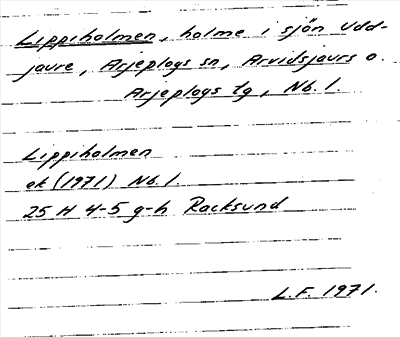 Lippiholmen, holme i sjön Udd-
jaure, Arjeplogs sn, Arvidsjaurs o.
Arjeplogs tg, Nb. l.
Lippiholmen
ek (1971) Nb. l.
25 H 4-5 g-h Racksund
L.F. 1971.